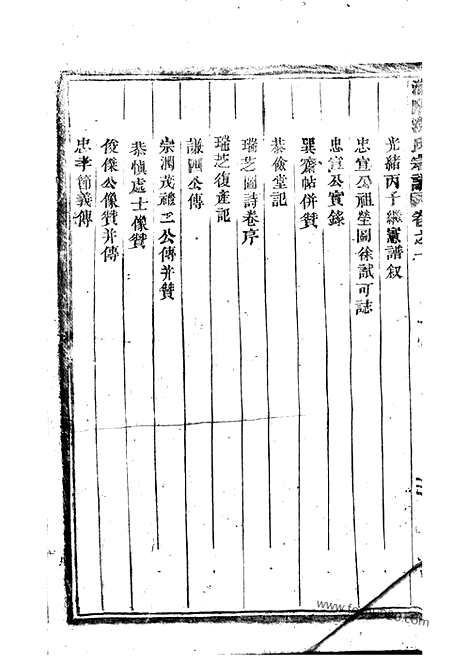 氏宗譜卷之一
光緒丙子繼憲譜叙
忠宣公祖塋圖徐試可誌
忠宣公實錄
巽齋帖併贊
恭儉堂記
瑞芝圖詩卷序
瑞芝復產記
謙四公傳
宗潤茂禮二公傳并贊
恭愼處士像贊
俊傑公像贊并傳
忠孝節義傳